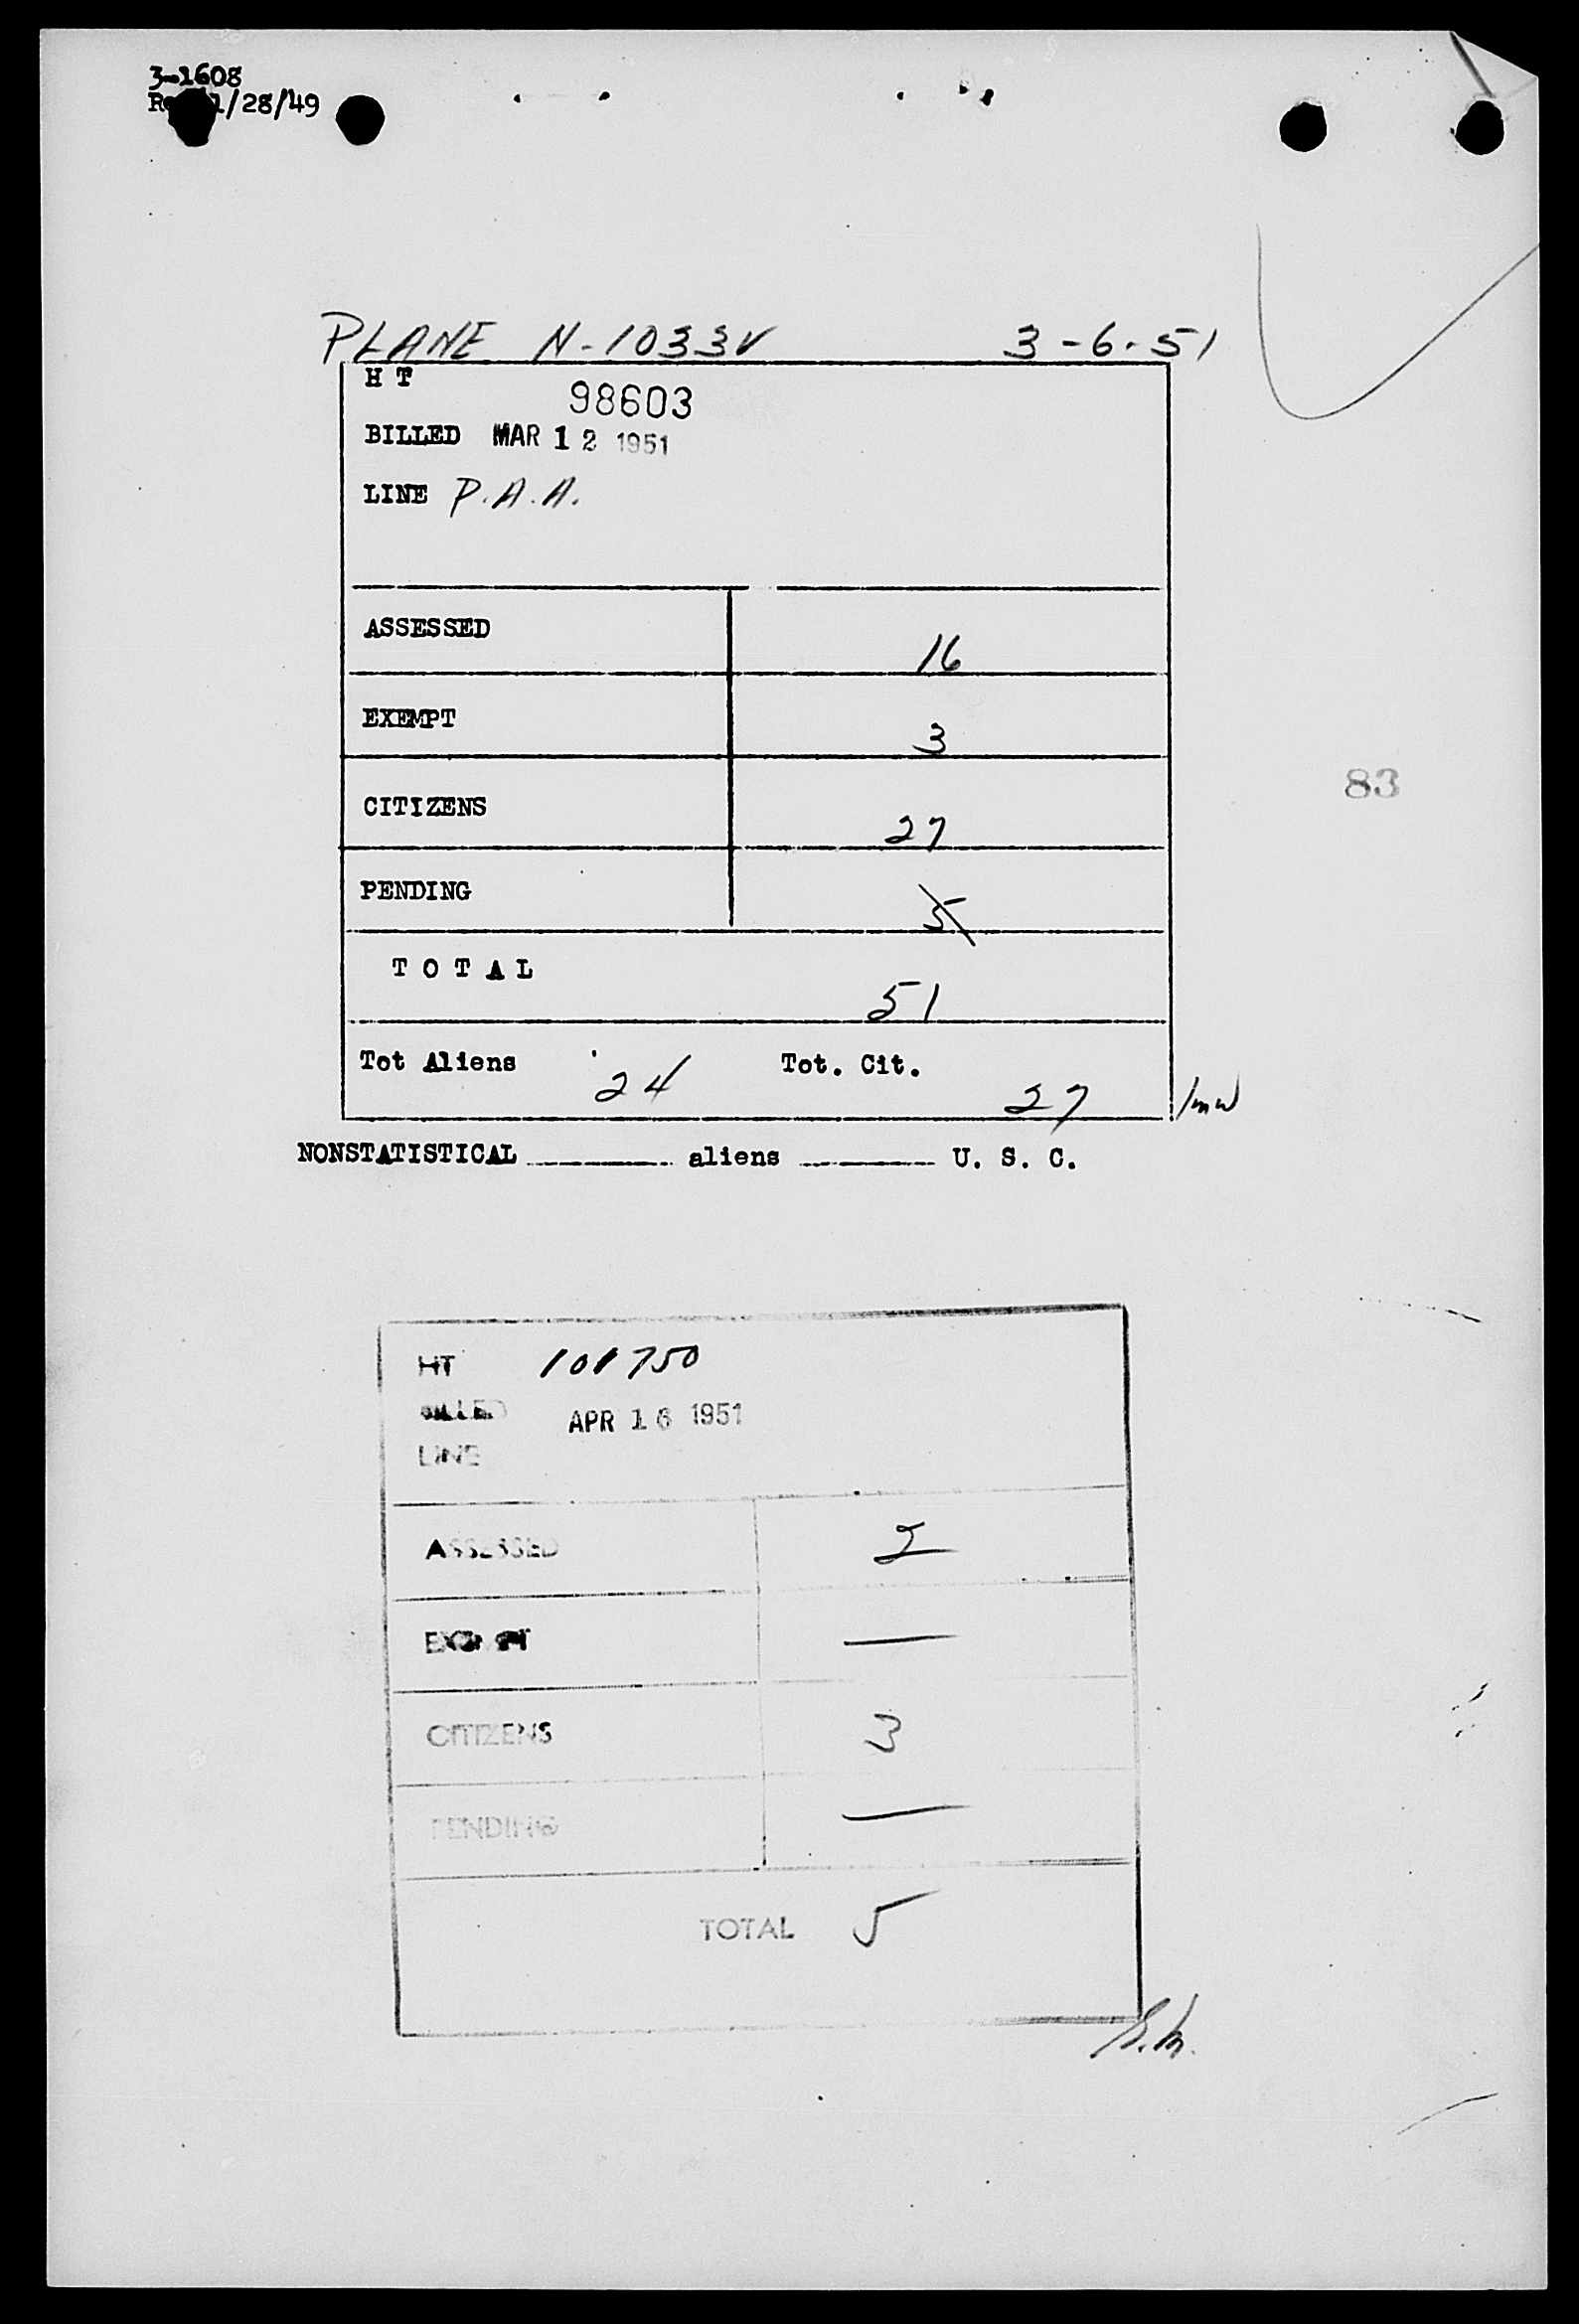 3-1608
1/28/49
PLANE N-1033V 3-6-51
H T 98603
BILLED MAR 12 1951
LINE P.A.A.
ASSESSED 16
EXEMPT 3
CITIZENS 27
83
PENDING 5
TOTAL 51
Tot Aliens 24 Tot. Cit. 27 /mw
NONSTATISTICAL aliens U. S. C.
HT 101750
BILLED APR 16 1951
LINE
ASSESSED 2
EXEMPT —
CITIZENS 3
PENDING —
TOTAL 5